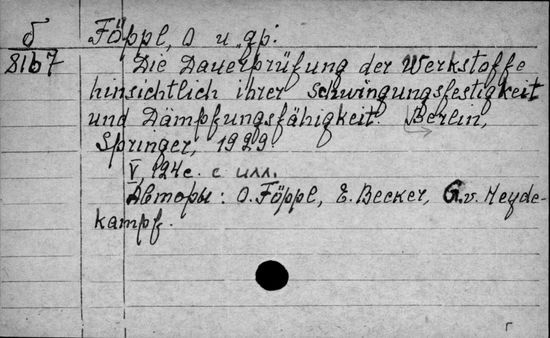 б
8167
Föppl, O и др.
Die Dauerprüfung der Werkstoffe
hinsichtlich ihrer Schwingungsfestigkeit
und Dämpfungsfähigkeit. Berlin,
Springer, 1929.
V, 124с. с илл.
Авторы: O. Föppl, E. Becker, G.v. Heyde-
kampf.
г